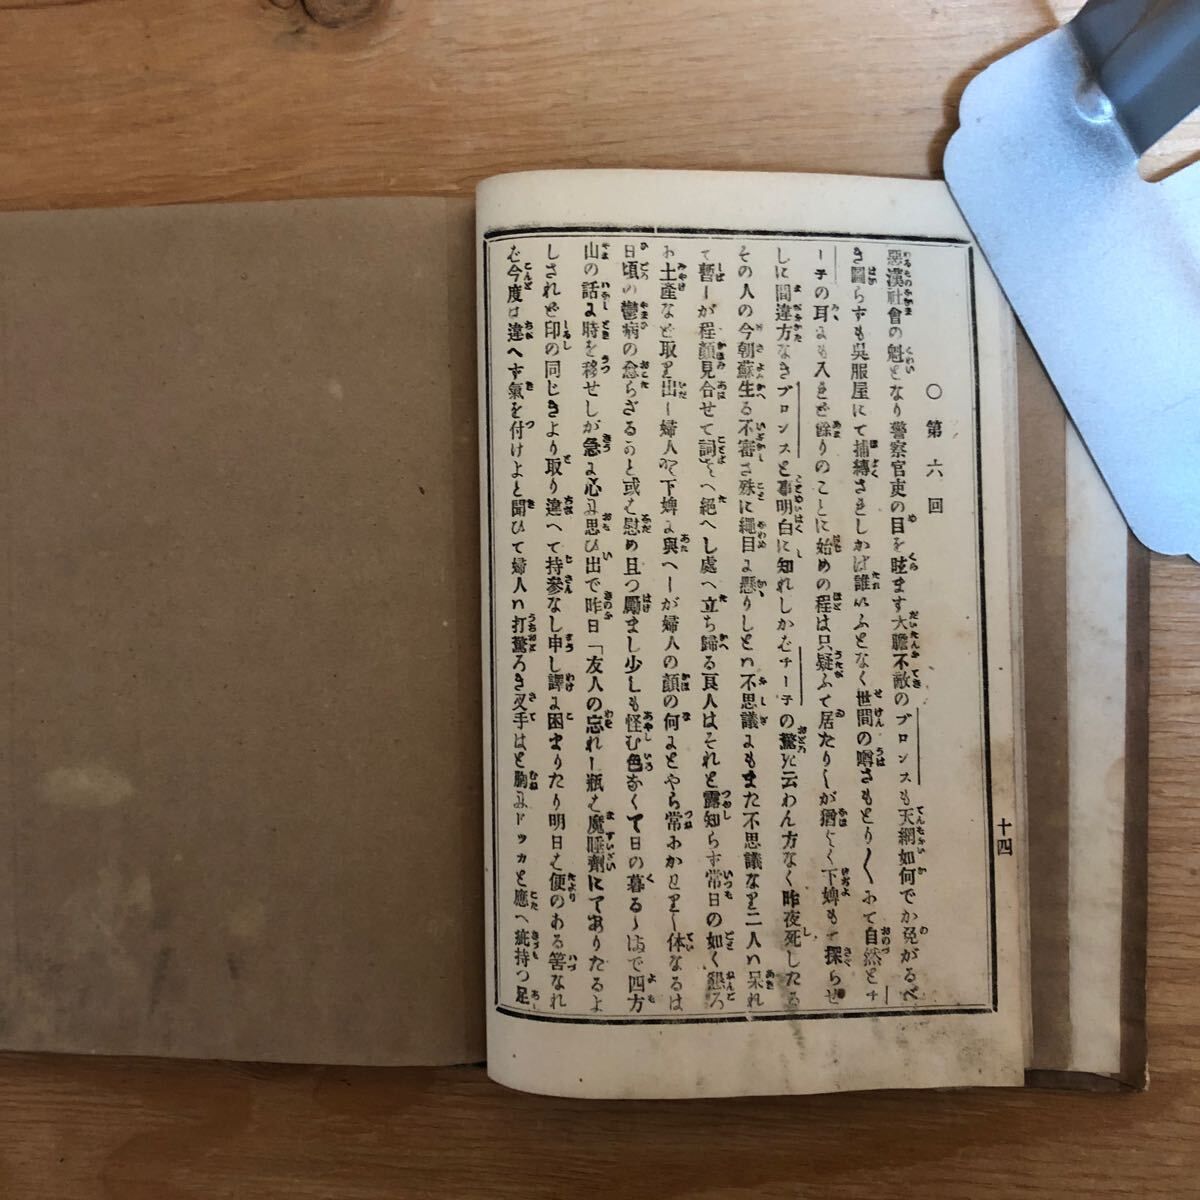 ○第六回
惡漢社會の魁となり警察官吏の目を眩ます大膽不敵のブロンスも天網如何でか免がるべ
き圖らずも呉服屋にて捕縛されしかば誰いふとなく世間の噂さもとり〲にて自然とチ
ー子の耳にも入れど餘りのことに始めの程は只疑ふて居たりしが猶よく下婢もて探らせ
しに間違方なきブロンスと事明白に知れしかばチー子の驚き云わん方なく昨夜死したる
その人の今朝蘇生る不審さ殊に繩目に懸りしとは不思議にもまた不思議なり二人は呆れ
て暫しが程顔見合せて詞さへ絶へし處へ立ち歸る良人はそれと露知らず常日の如く懇ろ
お土産など取り出し婦人や下婢に與へしが婦人の顔の何にとやら常にかはりし体なるは
日頃の鬱病の怠らざるゆと或は慰め且つ勵まし少しも怪む色なくて日の暮るゝまで四方
山の話に時を移せしが急に心に思ひ出で昨日「友人の忘れし瓶は魔睡劑にてありたるよ
しされど印の同じきより取り違へて持參なし申し譯に困まりたり明日は便のある筈なれ
ば今度は違へず氣を付けよと聞ひて婦人は打驚ろき扨手はと胸にドッカと應へ疵持つ足
十四